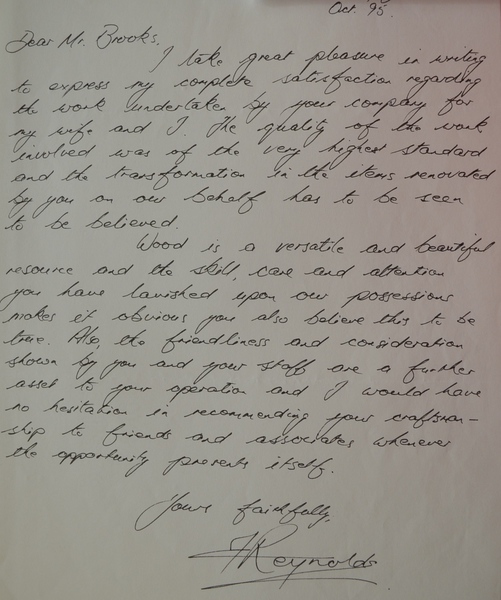 Oct. 95.
Dear Mr. Brooks,
I take great pleasure in writing
to express my complete satisfaction regarding
the work undertaken by your company for
my wife and I. The quality of the work
involved was of the very highest standard
and the transformation in the items renovated
by you on our behalf has to be seen
to be believed.
Wood is a versatile and beautiful
resource and the skill, care and attention
you have lavished upon our possessions
makes it obvious you also believe this to be
true. Also, the friendliness and consideration
shown by you and your staff are a further
asset to your operation and I would have
no hesitation in recommending your craftsman-
ship to friends and associates whenever
the opportunity presents itself.
Yours faithfully,
Reynolds